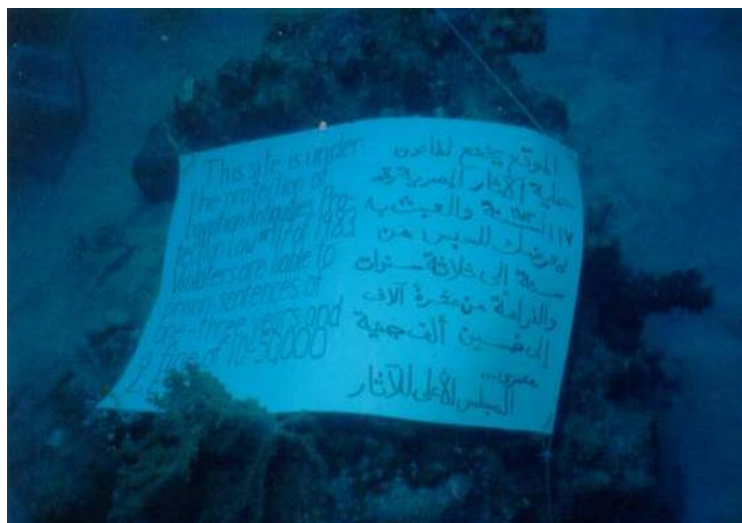 This site is under
the protection of
Egyptian Antiquities Pro-
tection Law #117 of 1983
Violaters are liable to
prison sentences of
one - three years and
fine of 10-50,000
الموقع يخضع لقانون
حماية الآثار المصرية رقم
١١٧ لسنة والعبث به
يعرضك للحبس من
سنة إلى ثلاثة سنوات
والغرامة من عشرة آلاف
إلى خمسين ألف جنية
مصرى...
المجلس الأعلى للآثار